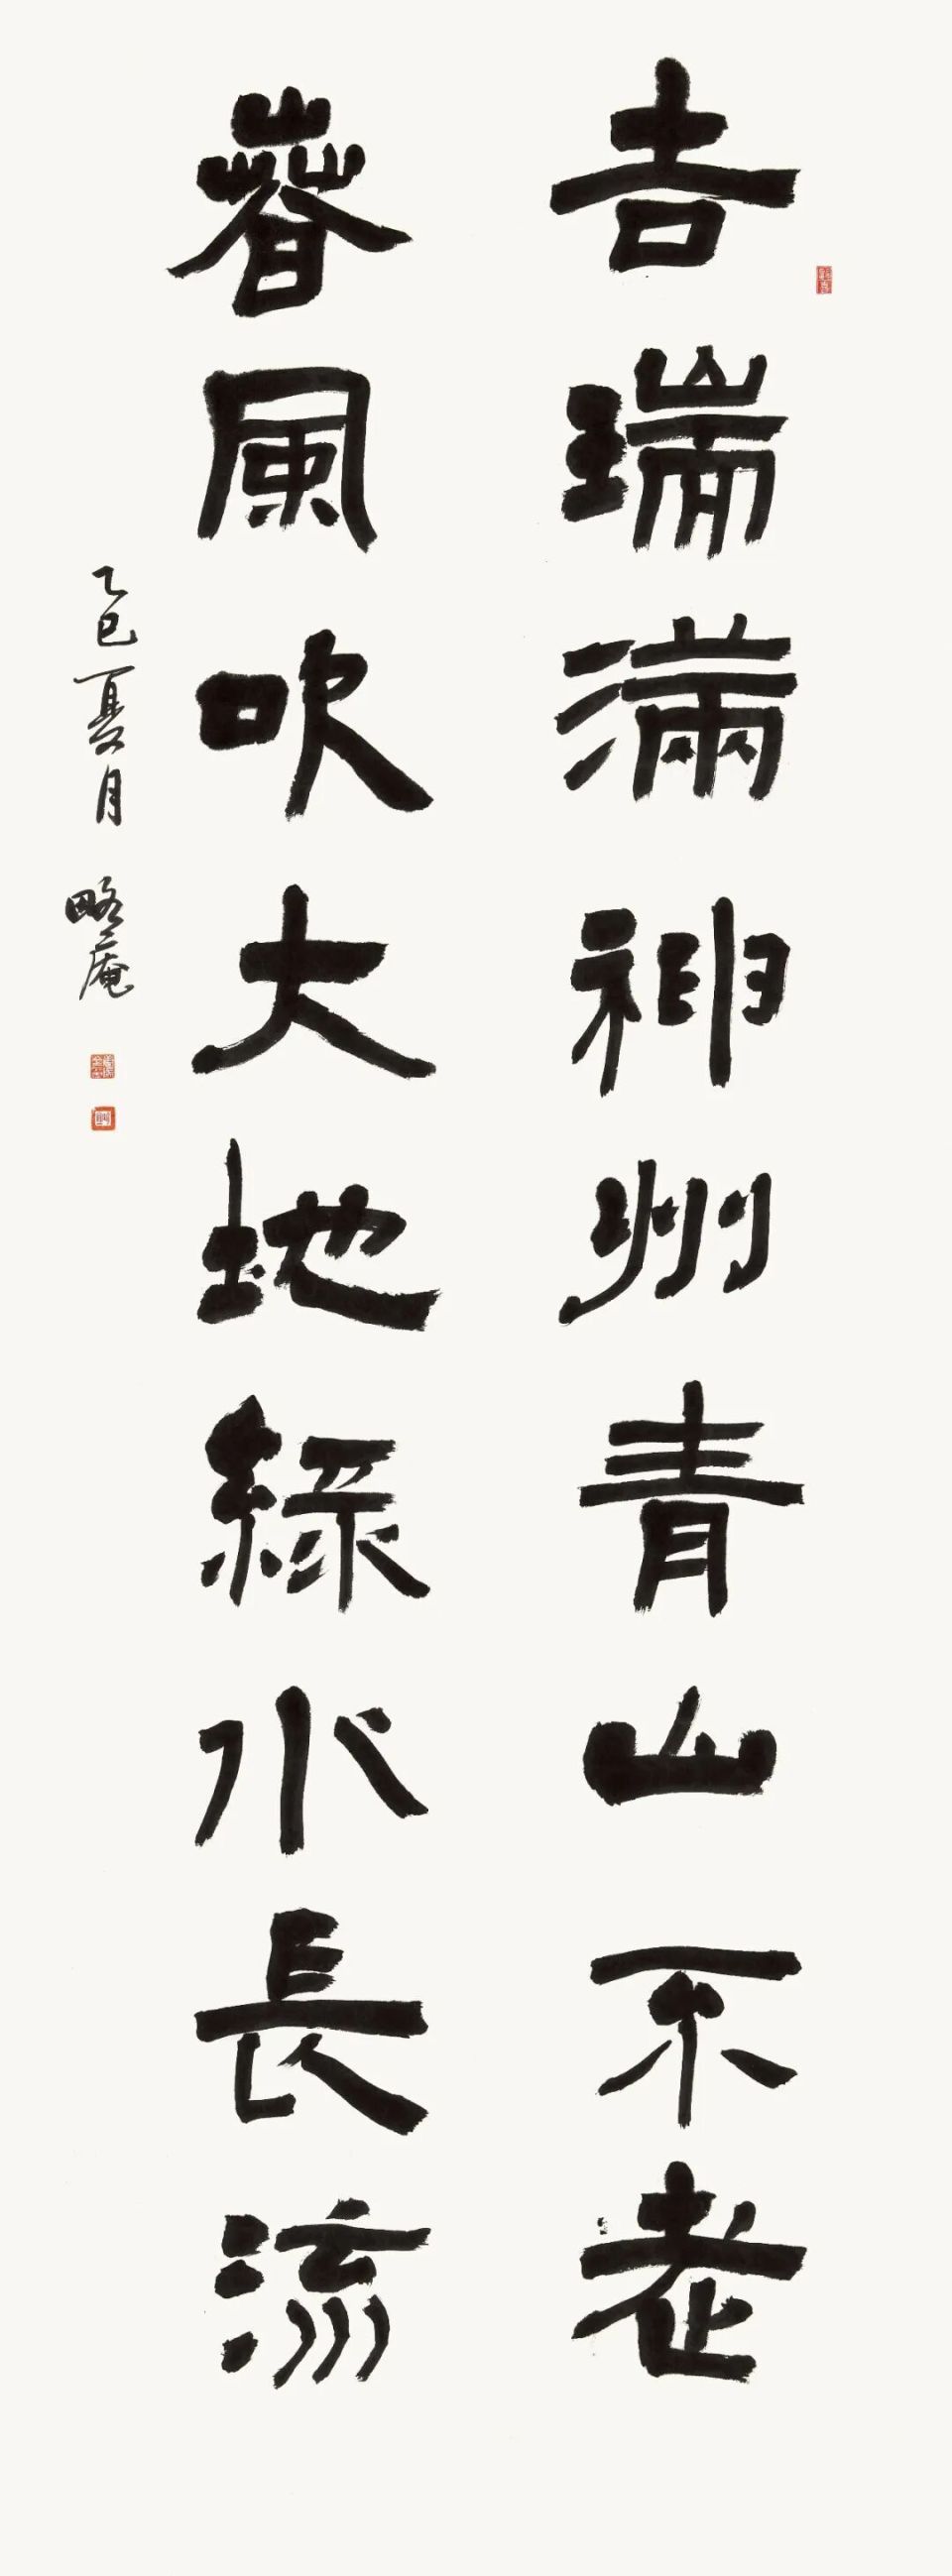 吉瑞滿神州青山不老
春風吹大地綠水長流
乙巳夏月 略庵